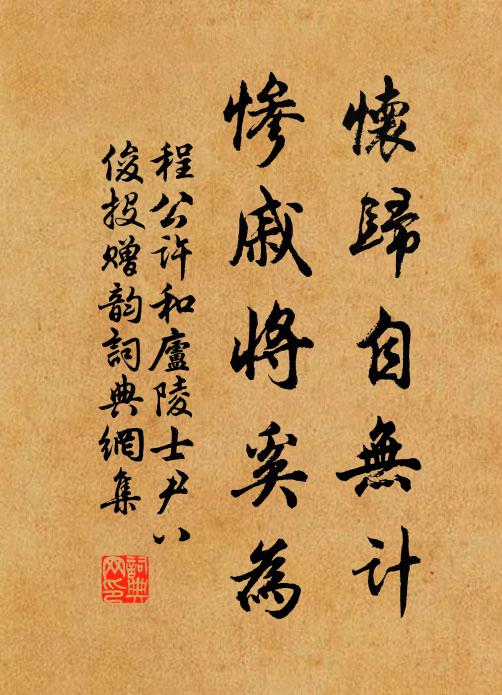 懷歸自無計
慘戚將奚為
程公許和廬陵士尹八
俊投贈韵詞典網集
詞典網印